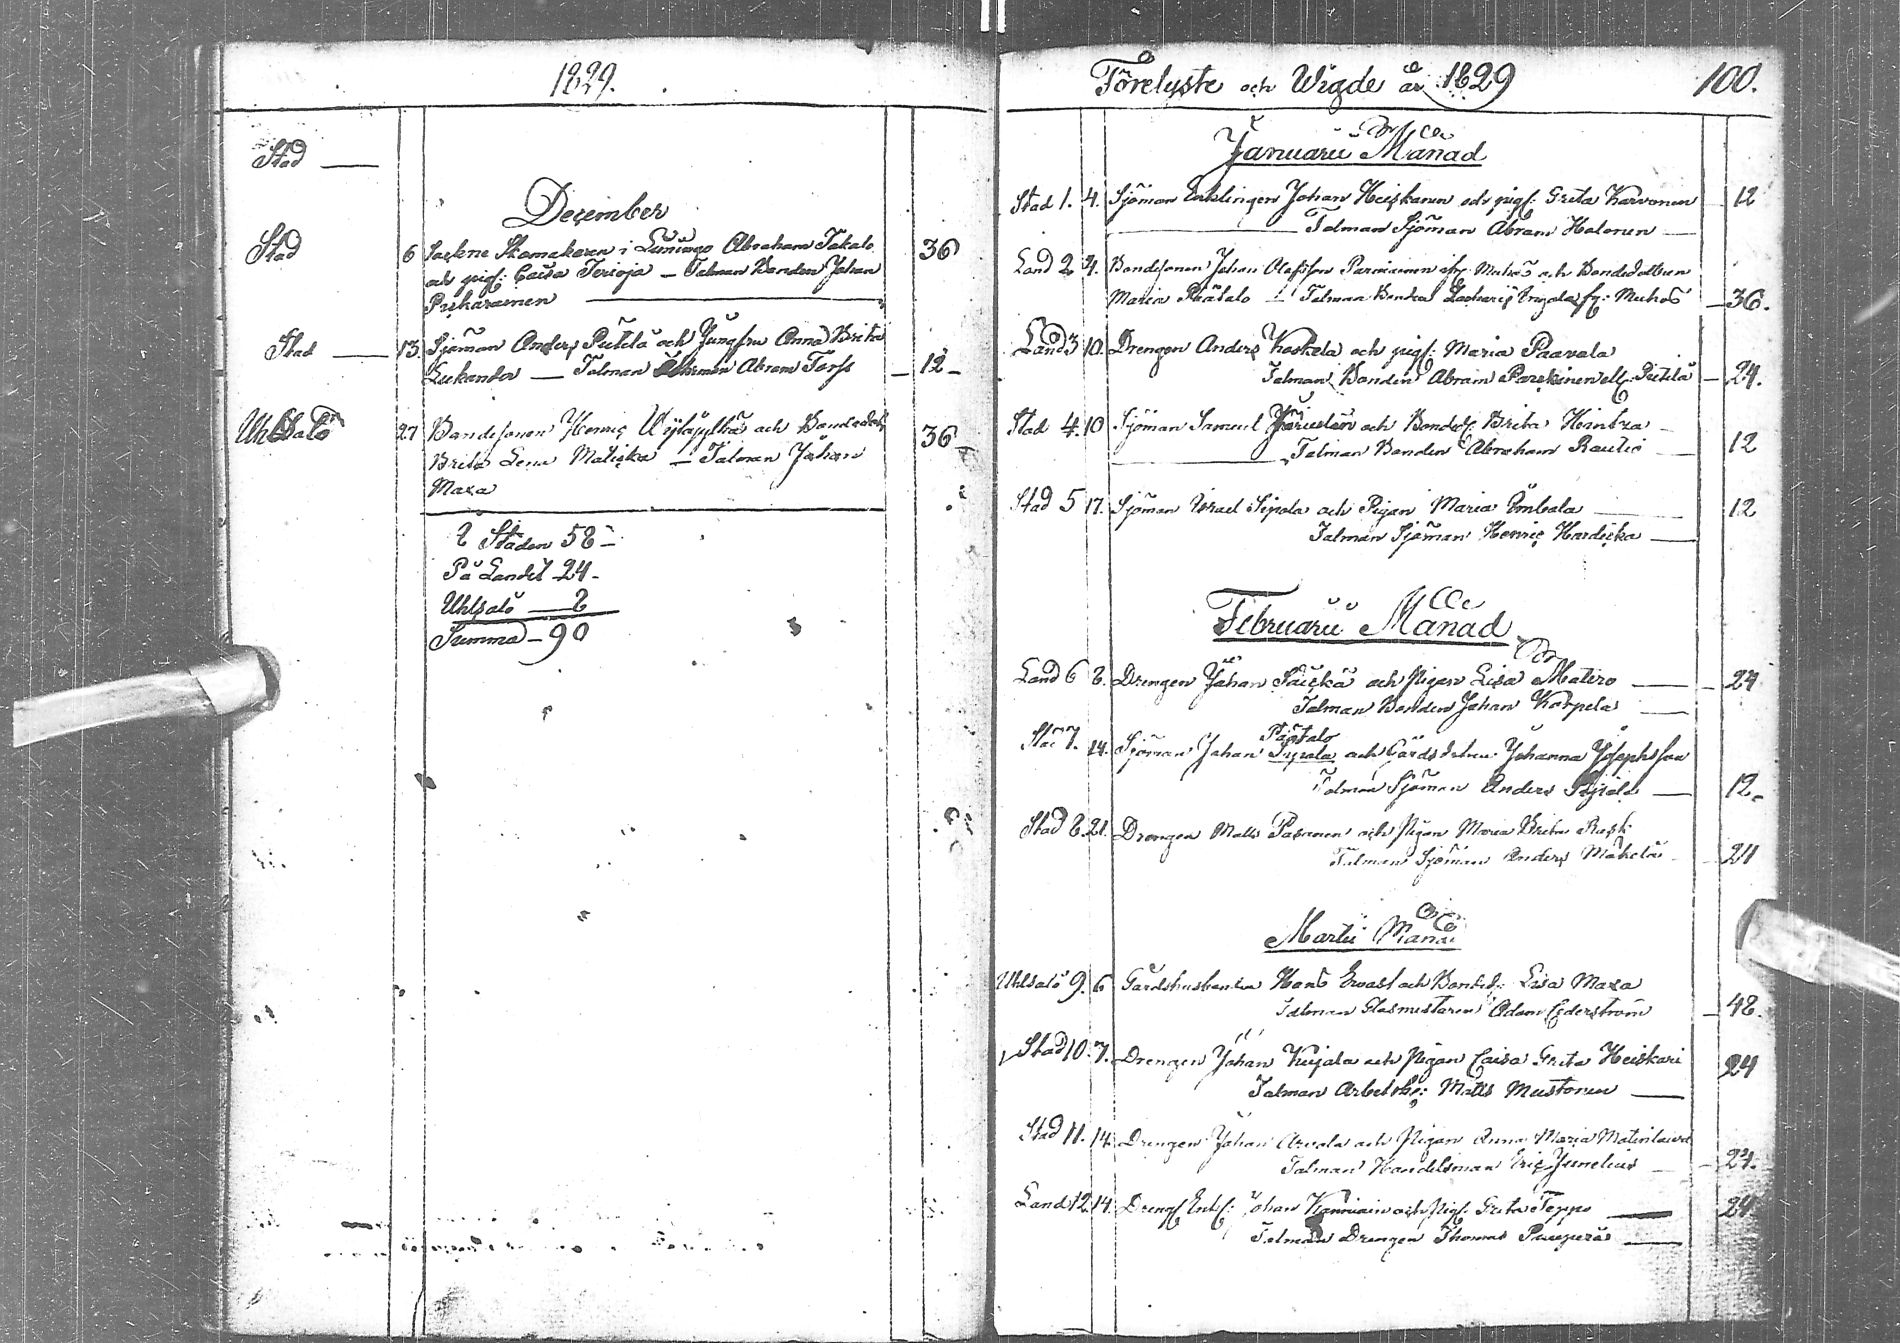 1829.
Stad
December
Stad 6 Sockne Skomakaren i Lumiago Abraham Takalo 36
och pig: Caisa Terwoja — Talman Bonden Johan
Pukaramen
Stad 13. Sjöman Anders Pietilä och Jungfru Anna Brita
Lukander — Talman Abram Forss 12
Uhlsalö 27 Bondesonen Henric och Bondedott: 36
Brita Lena Matiska — Talman Johan
Maxa
Staden 58
På Landet 24
Uhlsalö 8
Summa 90
Förelyste och Wigde år 1829 100.
Januarii Månad
Stad 1. 4. Sjöman Enklingen Johan Heiskanen och pig: Greta Karvonen 12
Talman Sjöman Abram Halonen
Land 2 4. Bondesonen Johan Olofsson Parviainen ifr. Muhos och Bondedottren
Maria Päätalo — Talman Bonden Zacharis fr: Muhos 36.
Land 3 10. Drengen Anders Koskela och pig: Maria Paavola
Talman Bonden Abram Parckinen ell. Pietilä 24.
Stad 4. 10 Sjöman Samuel och Bonded. Brita Heintza
Talman Bonden Abraham Rautio 12
Stad 5 17. Sjöman Israel Sipola och Pigan Maria 12
Talman Sjöman Henric Hardicka
Februarii Månad
Land 6 8. Drengen Johan och Pigan Lisa Matero 24
Talman Bonden Johan Karpela
Päätalo
Stad 7. 14. Sjöman Johan Sipola och Gårds Johanna Josephsson
Talman Sjöman Anders 12
Stad 8. 21. Drengen Matts Pasanen och Pigan Maria Brita Rusk
Talman Sjöman Anders Mäkelä 24
Martii Månad
Uhlsalö 9. 6 Gårdshusbonden Hans Ervast och Bonded: Lisa Maxa
Talman Glasmestaren Adam Cederström 48.
Stad 10. 7. Drengen Johan Kujala och Pigan Caisa Greta Heiskari 24
Talman Arbetsk: Matts Mustonen
Stad 11. 14. Drengen Johan Arvola och Pigan Anna Maria Matinlauri
Talman Handelsman Eric Junelius 24.
Land 12. 14. Dreng Enkl: Johan och Pig: Greta Teppo 24
Talman Drengen Thomas